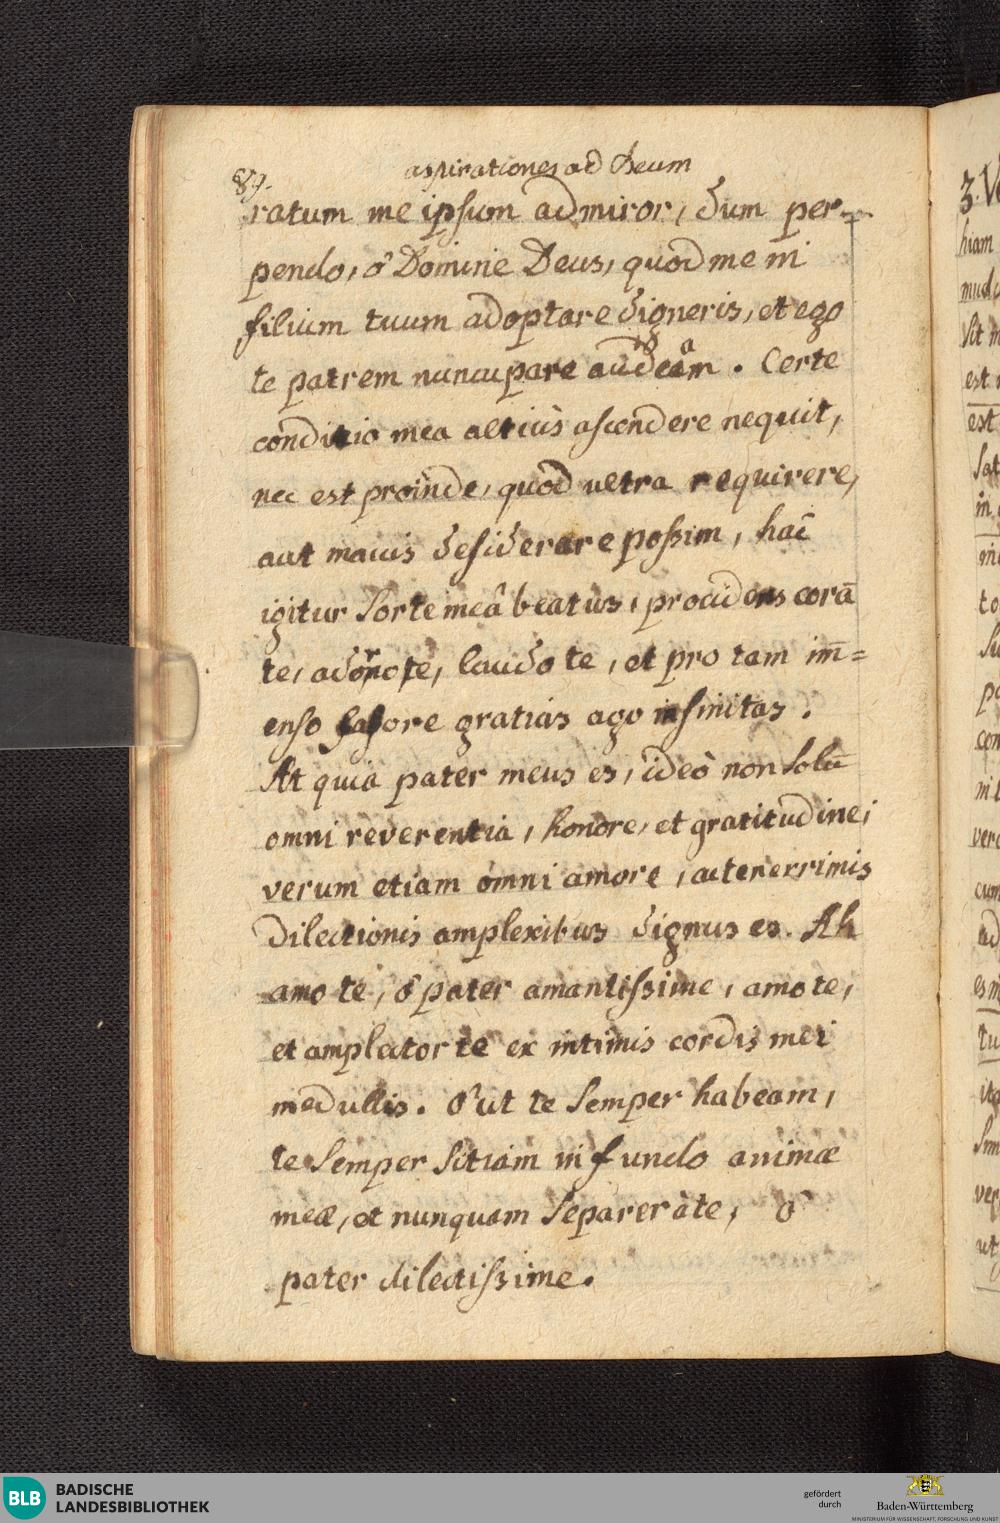 aspirationes ad Deum
89.
ratum me ipsum admiror, dum per-
pendo, ô Domine Deus, quod me in
filium tuum adoptare digneris, et ego
te patrem nuncupare audeam. Certe
conditio mea altiùs ascendere nequit,
nec est proinde, quod ultra requirere,
aut maius desiderare possim, hac
igitur sorte meâ beatus, procidens corā
te, adoro te, laudo te, et pro tam im̄=
enso favore gratias ago infinitas.
At quia pater meus es, ideò non solū
omni reverentia, honore, et gratitudine,
verum etiam omni amore, ac tenerrimis
dilectionis amplexibus dignus es. Ah
amo te, ô pater amantissime, amo te,
et amplector te ex intimis cordis mei
medullis. O ut te semper habeam,
te semper sitiam in fundo animæ
meæ, et nunquam separer à te, ô
pater dilectissime.
3. V
hiam
mud
sit m
est
est
in
to
con
ni
vero
cum
ad
es m
tu
ita
ver
ut
BLB BADISCHE
LANDESBIBLIOTHEK
gefördert
durch
Baden-Württemberg
MINISTERIUM FÜR WISSENSCHAFT, FORSCHUNG UND KUNST